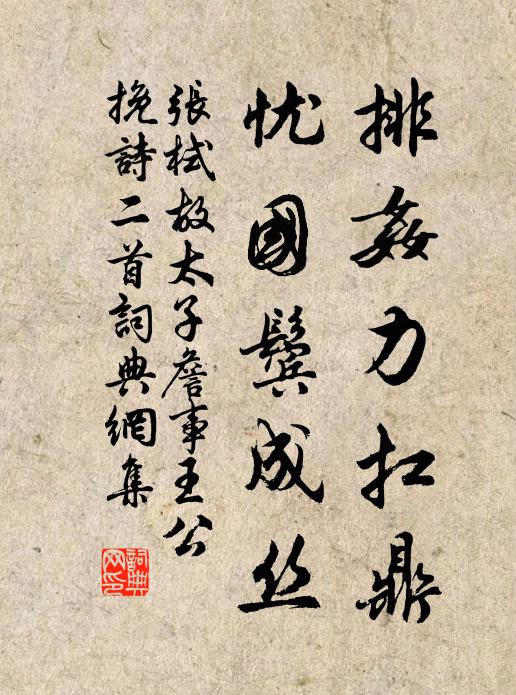 排姦力扛鼎
忧國鬓成丝
張栻故太子詹事王公
挽詩二首詞典網集
詞典
网印